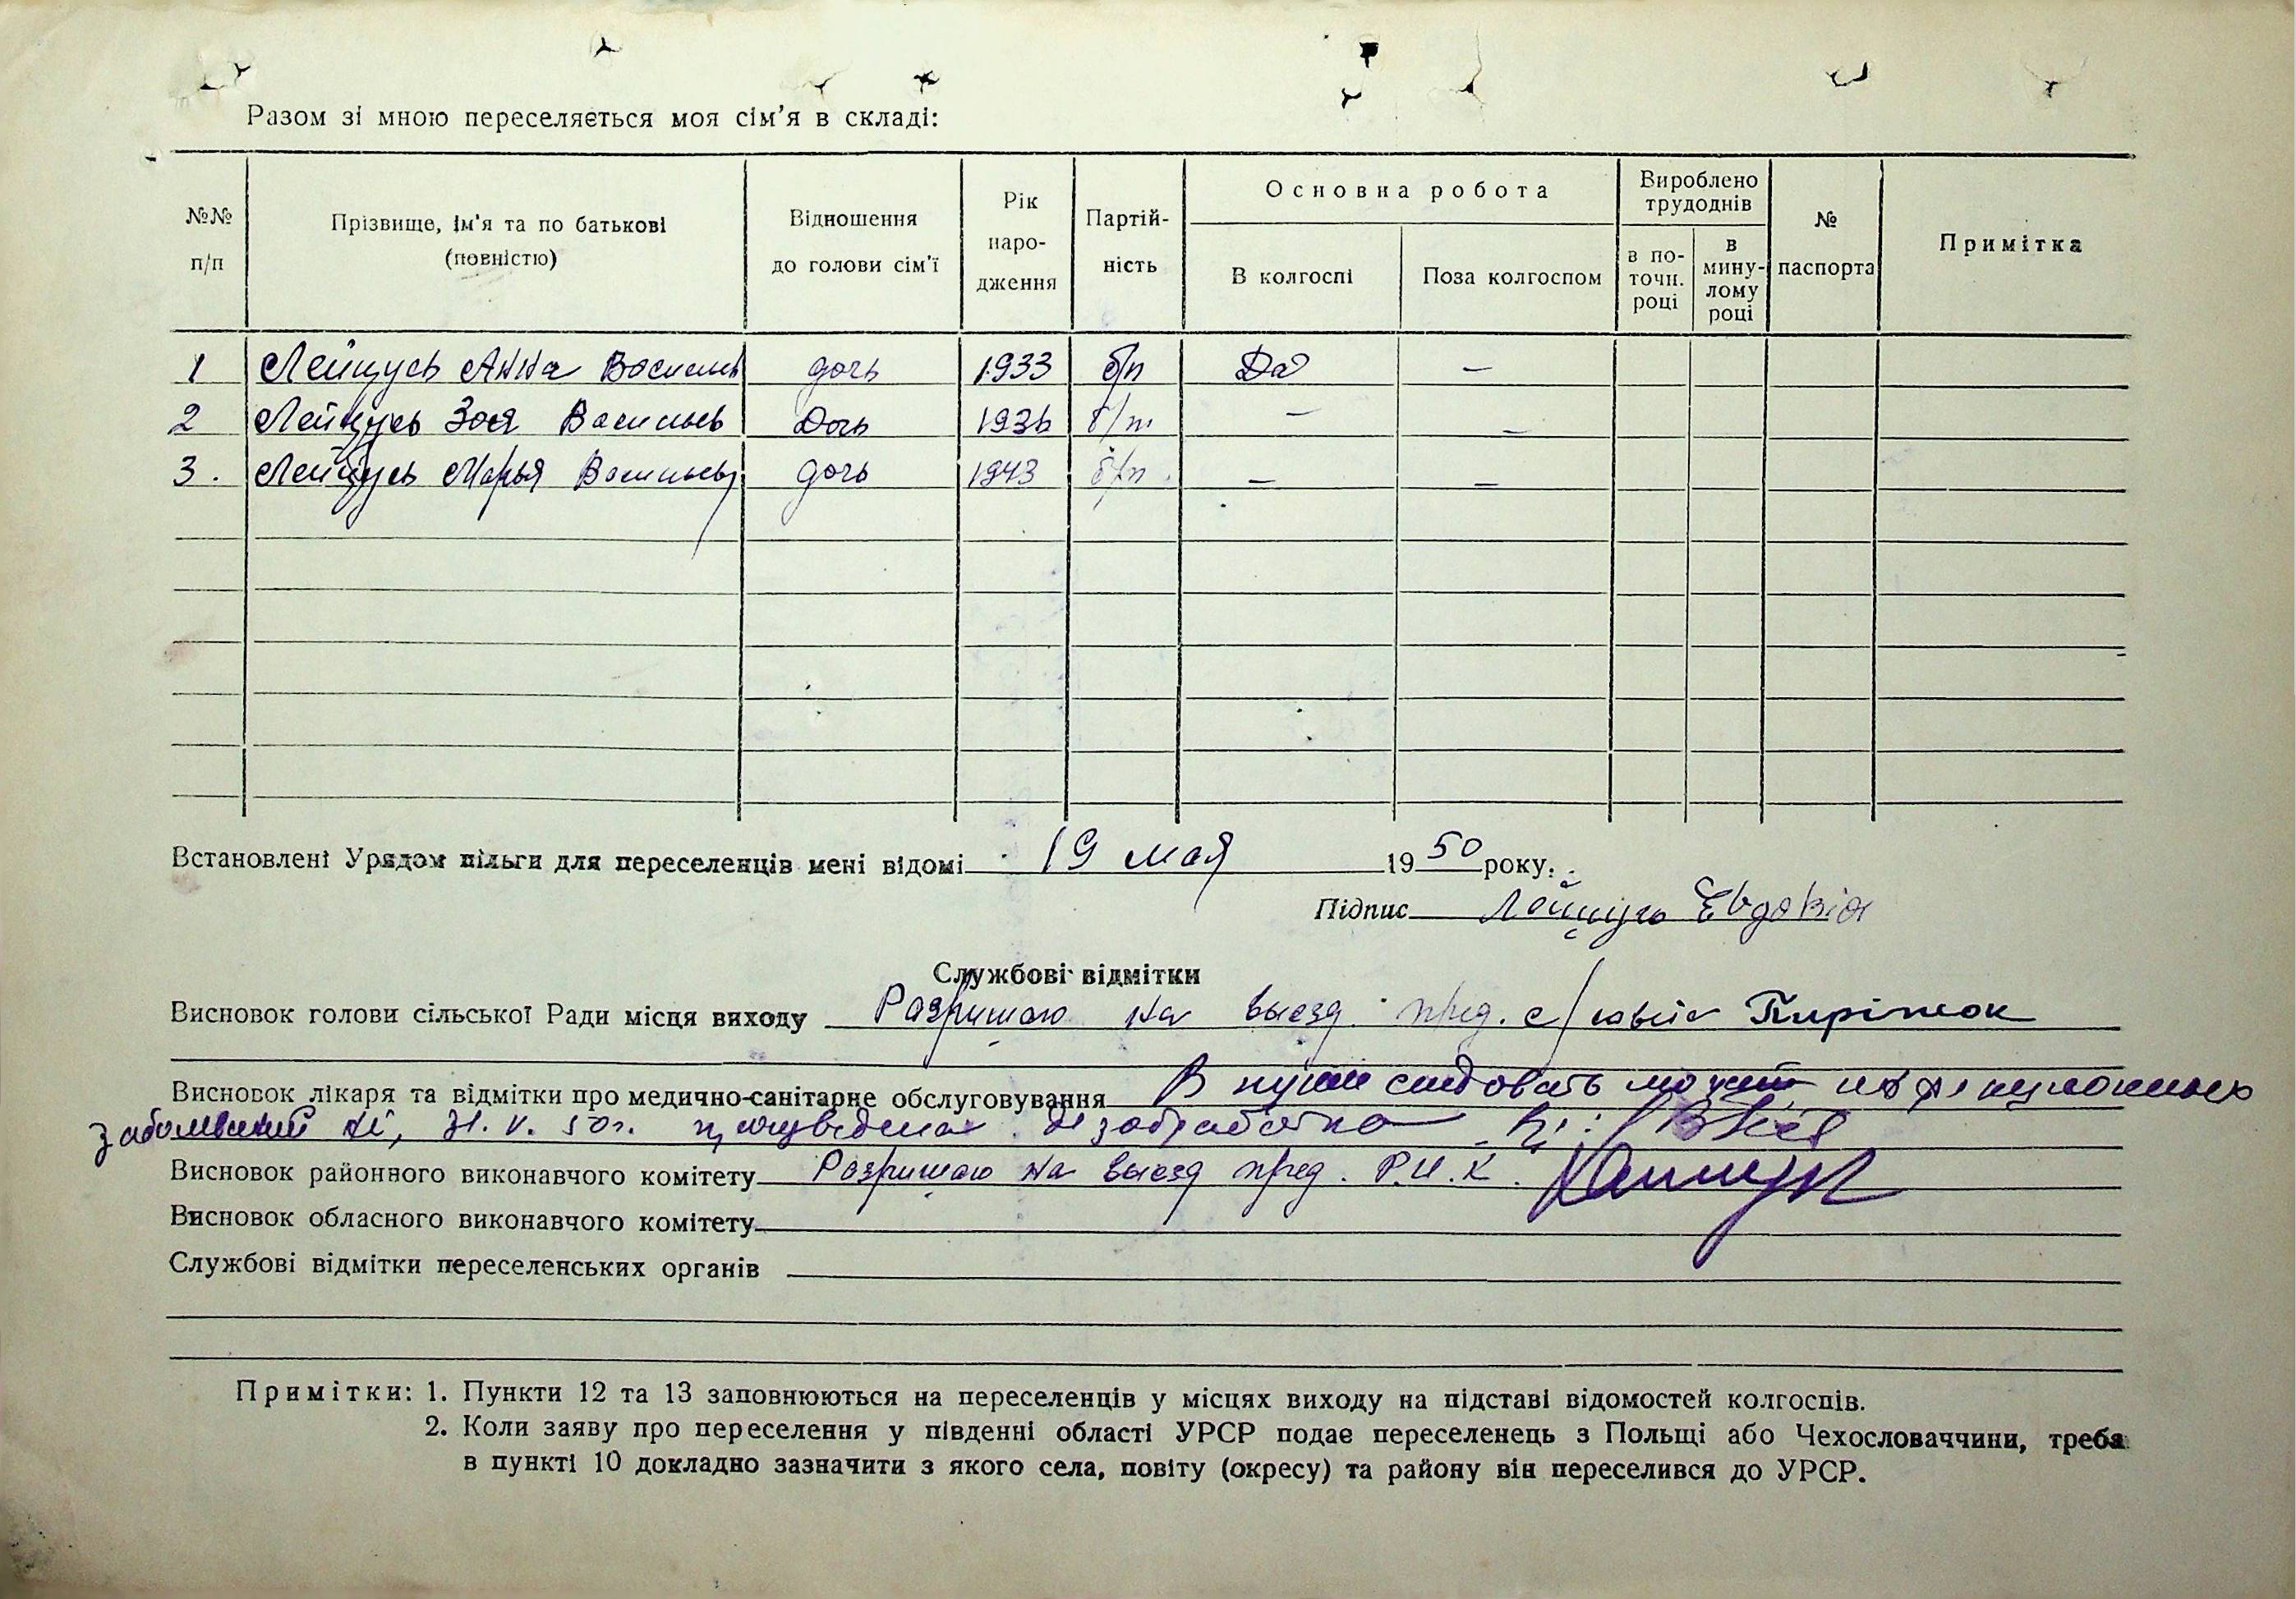 Разом зі мною переселяється моя сім'я в складі:
№№ п/п
Прізвище, ім'я та по батькові (повністю)
Відношення до голови сім'ї
Рік народження
Партійність
Основна робота
В колгоспі
Поза колгоспом
Вироблено трудоднів
в поточн. році
в минулому році
№ паспорта
Примітка
1 Лейцусь Анна Васильев дочь 1933 б/п Да –
2 Лейцусь Зоя Васильев Дочь 1936 б/п – –
3. Лейцусь Марья Васильев дочь 1943 б/п – –
Встановлені Урядом пільги для переселенців мені відомі 19 мая 1950 року.
Підпис Лейцусь Евдокія
Службові відмітки
Висновок голови сільської Ради місця виходу Разришаю на выезд пред. с/
Висновок лікаря та відмітки про медично-санітарне обслуговування В пути следовать может,
заболеваний 31. V. 50г.
Висновок районного виконавчого комітету Разришаю на выезд пред. Р.И.К.
Висновок обласного виконавчого комітету
Службові відмітки переселенських органів
Примітки: 1. Пункти 12 та 13 заповнюються на переселенців у місцях виходу на підставі відомостей колгоспів.
2. Коли заяву про переселення у південні області УРСР подає переселенець з Польщі або Чехословаччини, треба
в пункті 10 докладно зазначити з якого села, повіту (окресу) та району він переселився до УРСР.